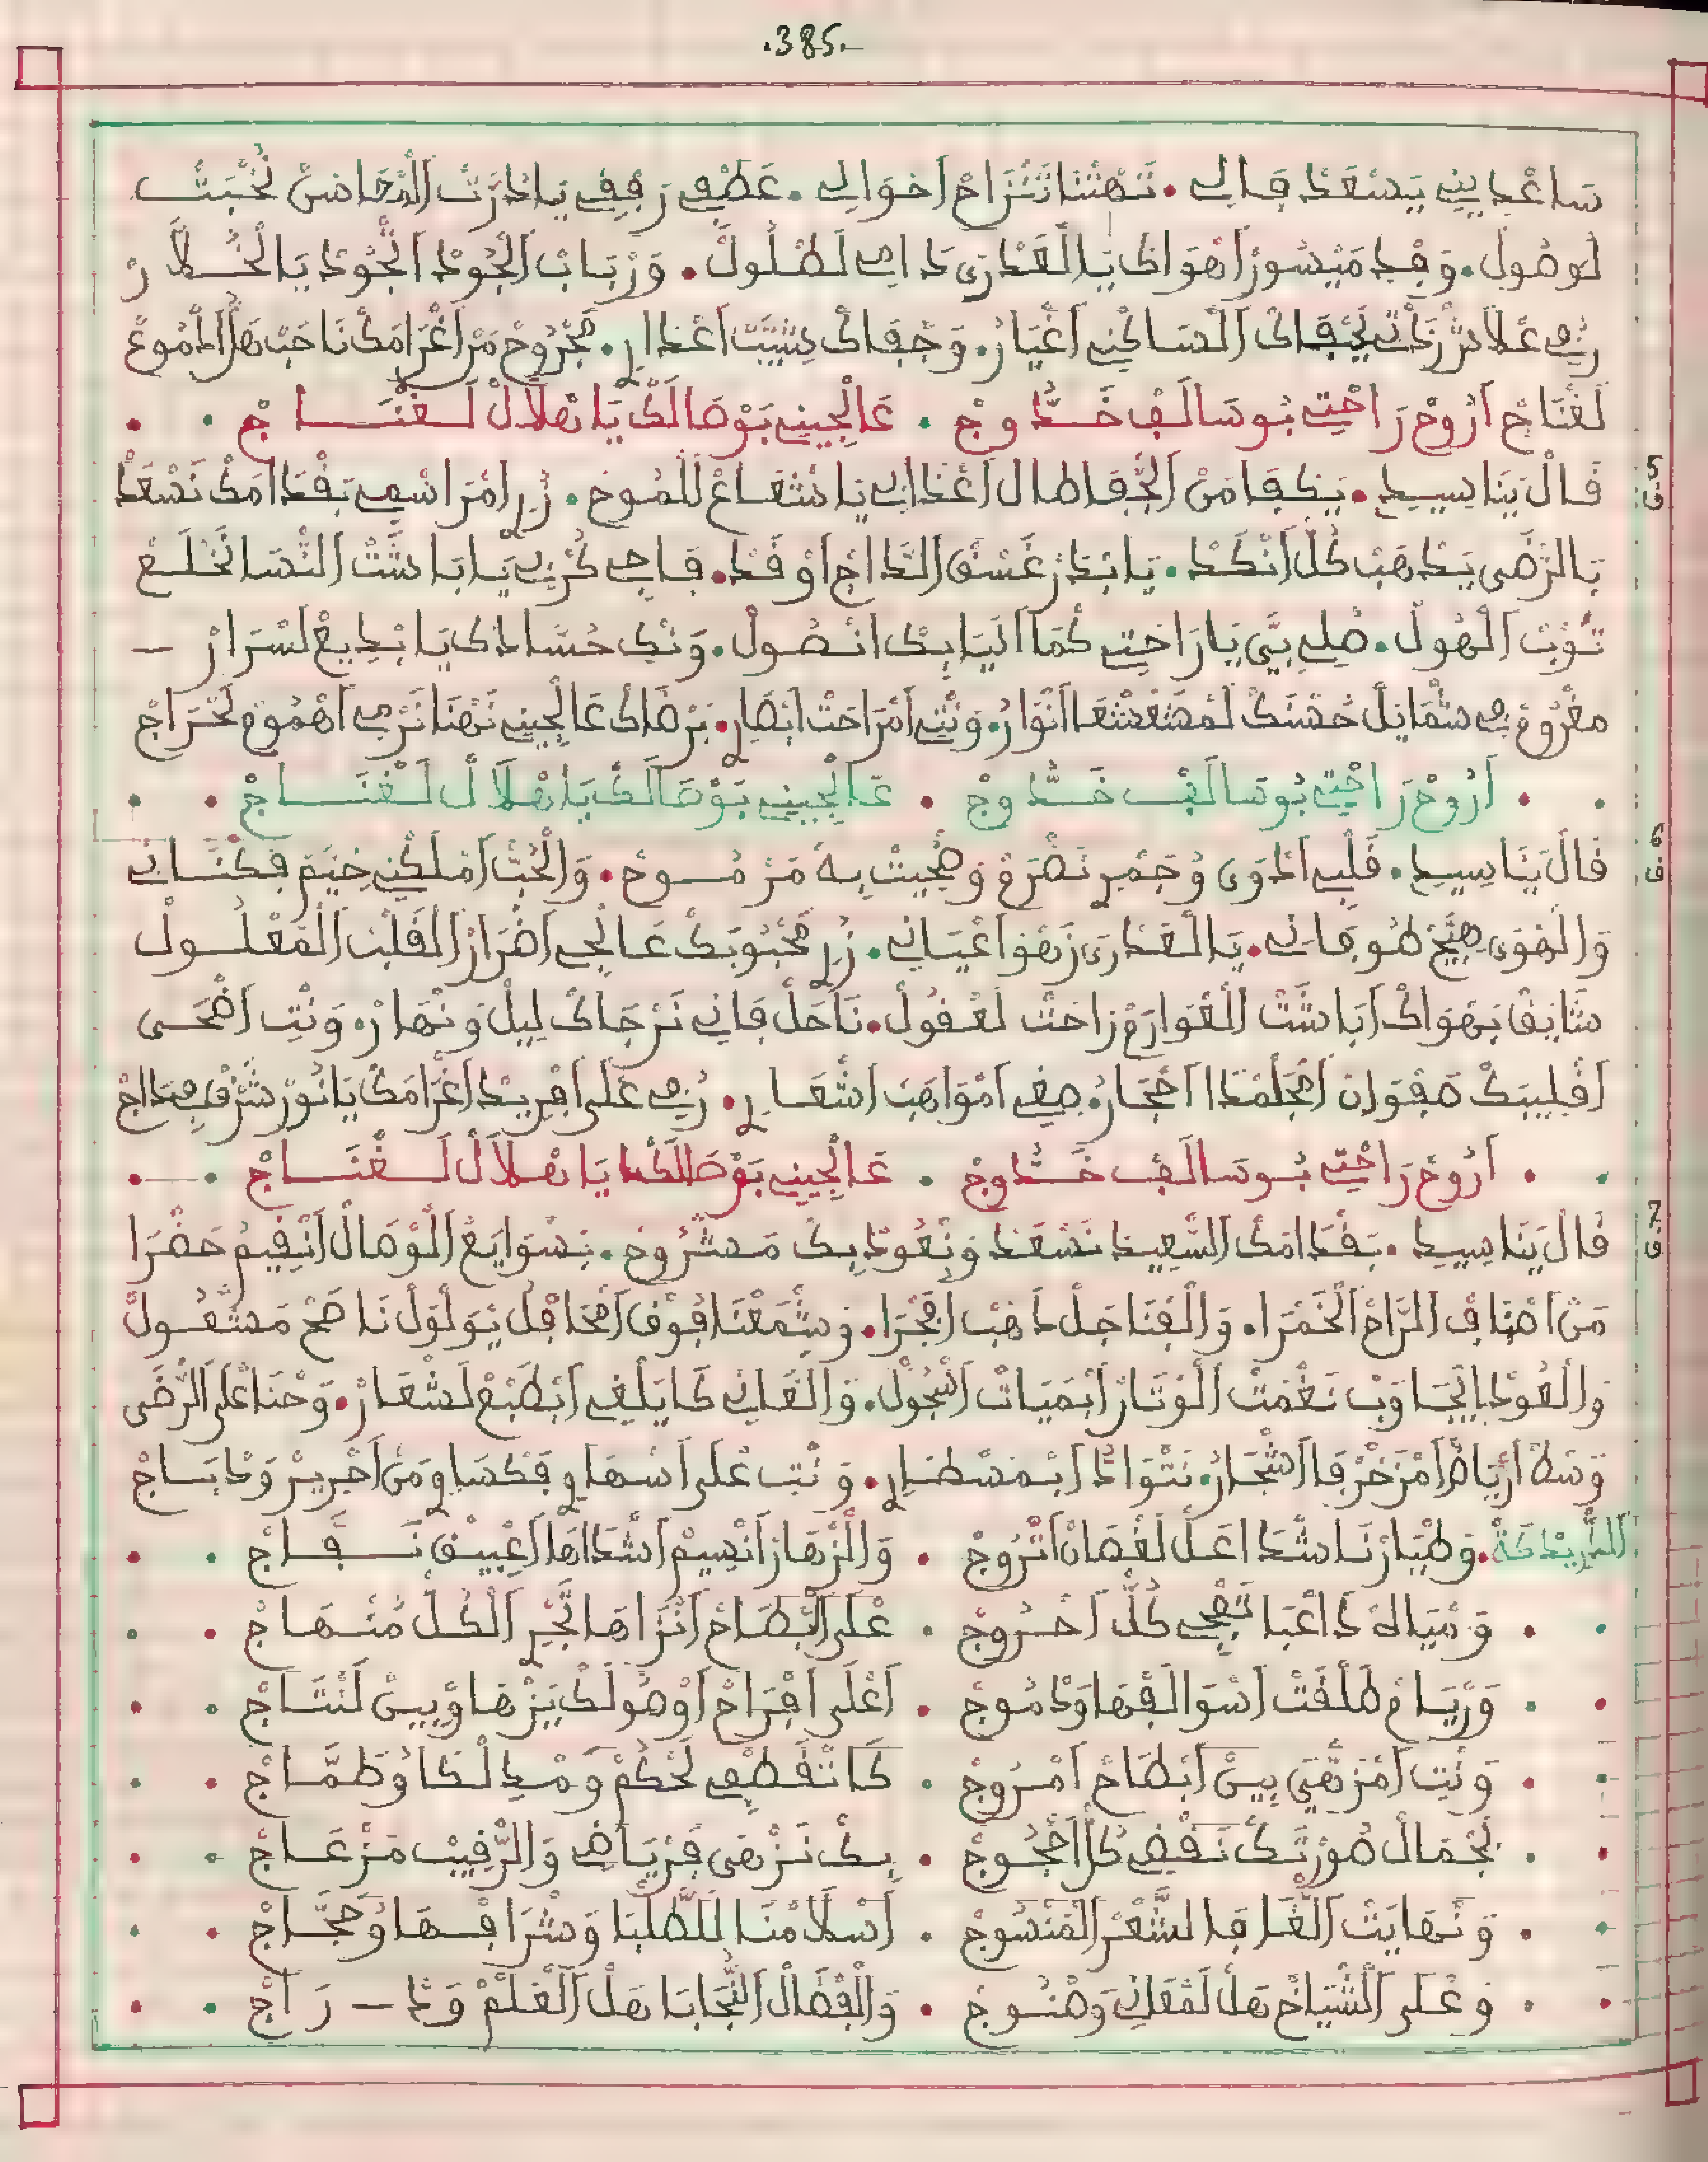 .385.
سَاعْدِينِي يَسْعَدْ فَالِي . نَهْنَا تَنْزَاحْ أَحْوَالِي . عَطْفِي رَفْقِي يَا دُرَّتْ الْمْحَاضَنْ نُخْبَتْ
لَوْصُولْ . وَفِدِ مَيْسُورْ أَهْوَاكْ يَا الْعَدْرَى دَابِي لَطْلُولْ . وَرْبَابْ الْجُودْ اتْجُودْ يَا لْخُلَّارْ
جَرِّي عْلَاشْ لَجْفَاكْ الْسَاكْنِي أَغْيَارْ . وَجْفَاكْ شَيَّبْ اعْدَارِ . مَجْرُوحْ مَنْ اغْرَامَكْ نَاحَبْ هَلّْ الدّْمُوعْ
لَغْنَاجْ أَرُوحْ رَاحْتِي بُو سَالَفْ خَدُّوجْ . عَالْجِينِي بَوْصَالَكْ يَا هْلَالْ لَغْنَاجْ
5
ق
قَالْ يَنَا سِيدِ . يَكْفَا مَنْ الْجْفَا طَالْ اعْدَابِي يَا شْعَاعْ لَلْمُوحْ . زُرِ امْرَاسْمِي بَقْدَامَكْ نَسْعَدْ
بَالرْضَى يَدْهَبْ كُلْ أَنْكَدْ . يَا بَدْرْ غَسْقْ الدَّاجْ أَوْقَدْ . فَاجِي كُرْبِي يَا بَاشَتْ النْسَا نَخْلَعْ
تُوبْ الْهُولْ . صْلِي بِيَّ يَا رَاحْتِي كْمَا انَيَا بِكْ انْصُولْ . وَنْكِي حُسَّادَكْ يَا بْدِيعْ لَسْرَارْ –
مَغْرُومْ فِي شْمَايَلْ حُسْنَكْ لَمْشَعْشْعَا انْوَارُ . وَنْتِ امْرَاحَتْ ابْصَارِ . بَرْضَاكْ عَالْجِينِي نَهْنَا نَرْمِي اهْمُومْ لَحْرَاجْ
أَرُوحْ رَاحْتِي بُو سَالَفْ خَدُّوجْ . عَالْجِينِي بَوْصَالَكْ يَا هْلَالْ لَغْنَاجْ
6
ق
قَالْ يَنَا سِيدِ . قَلْبِي ادْوَى وُجَمْرِ نَصْرَعْ وَضْحِيتْ بِهْ مَرْمُوحْ . وَالْحُبّْ امْلَكْنِي خِيَّمْ فَكْنَانِي
وَالْهْوَى هِيَّجْ طُوفَانِي . يَا الْعَدْرَى زَهْوْ اعْيَانِي . زُرِ مَحْبُوبَكْ عَالْجِي اضْرَارْ الْقَلْبْ الْمَعْلُولْ
شَايَقْ بَهْوَاكْ أَبَاشَتْ الْغْوَارَمْ رَاحَتْ لَعْقُولْ . نَاحَلْ فَانِي نَرْجَاكْ لِيلْ وَنْهَارْ . وَنْتِ اضْحَى
اقْلِيبَكْ صَفْوَانْ اجْلَمْدَا احْجَارُ . صِغِي امْوَاهَبْ اشْعَارِ . رُفِي عْلَى افْرِيدْ اغْرَامَكْ يَا نُورْ شَرْقْ فِي دَاجْ
أَرُوحْ رَاحْتِي بُو سَالَفْ خَدُّوجْ . عَالْجِينِي بَوْصَالَكْ يَا هْلَالْ لَغْنَاجْ
7
ق
قَالْ يَنَا سِيدِ . بَقْدَامَكْ السْعِيدْ نَسْعَدْ وَنْعُودْ بِكْ مَشْرُوحْ . بَسْوَايَعْ الْوْصَالْ انْقِيمُ حَضْرَا
مَنْ اصْنَافْ الرَّاحْ الْخَمْرَا . وَالْفْنَاجَلْ دْهَبْ افْجْرَا . وَشْمَعْنَا فُوقْ امْحَافَلْ يَوْلُولْ نَاصَحْ مَشْعُولْ
وَالْعُودْ ايْجَاوَبْ نَغْمَتْ الْوْتَارْ ابْمَيَاتْ اشْجُولْ . وَالْغَانِي كَايَلْغِي ابْطَبْعْ لَشْعَارْ . وَحْنَا عْلَى الرْضَى
وَسْطْ أَرْيَاضْ امْزَخْرْفَا اشْجَارُ . نَتْوَادّْ ابْمَسْطَارِ . وَنْتِ عْلَى اسْهَارِ فَكْسَاوِ مَنْ احْرِيرْ وَدْبَاجْ
الدْرِيدْكَةْ . وَطْيَارْنَا شْدَا اعْلْ لَغْصَانْ اتْرُوجْ . وَالْزْهَارْ انْسِيمْ اشْدَاهَا اعْبِيقْ نَفَّاجْ
وَمْيَاهْ دَاعْبَا تَضْحِي كُلّْ احْرُوجْ . عْلَى الْبْطَاحْ انْزَاهَا تَجْرِ الْكُلّْ مَنْهَاجْ
وَرْيَامْ طَلْقَتْ اسْوَالَفْهَا وَدْمُوجْ . اعْلَى افْرَاحْ اوْصُولَكْ يَزْهَاوْ بِينْ لَنْتَاجْ
وَنْتِ امْزَهْيَ بِينْ ابْطَاحْ امْرُوجْ . كَا تْقَطْفِي لْحْكَمْ وَمْدِ لْكَاوْ طَمَّاجْ
بَجْمَالْ صُورْتَكْ نَقْضِي كُلّْ احْجُوجْ . بِكْ نَزْهَى فَرْيَاضِي وَالرْقِيبْ مَزْعَاجْ
وَنْهَايَتْ الْغَا فَالشْعْرْ الْمَنْسُوجْ . اسْلَامْنَا لَلطُّلْبَا وَشْرَافْهَا وَحُجَّاجْ
وَعْلَى الشْيَاخْ هَلْ لَمْعَانِي وَصْنُوجْ . وَالْفْضَالْ النْجَابَا هَلْ الْعْلَمْ وَدْ – رَاجْ